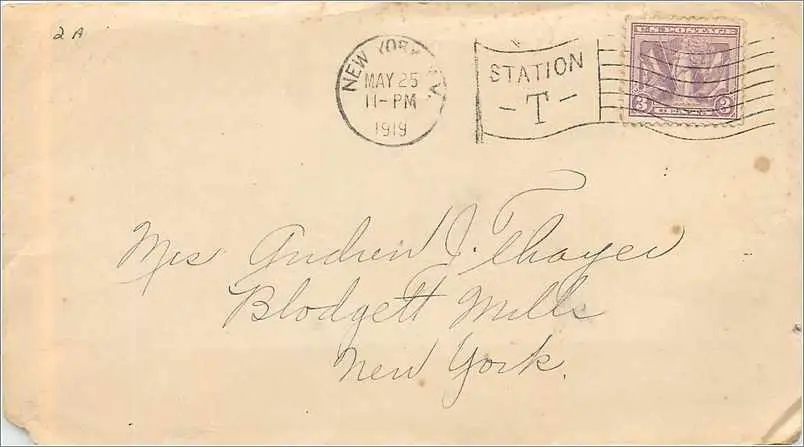 2 A
NEW YORK, N.Y.
MAY 25
11-PM
1919
STATION
-T-
U.S. POSTAGE
3 CENTS 3
Mrs Andrew J. Thayer
Blodgett Mills
New York.